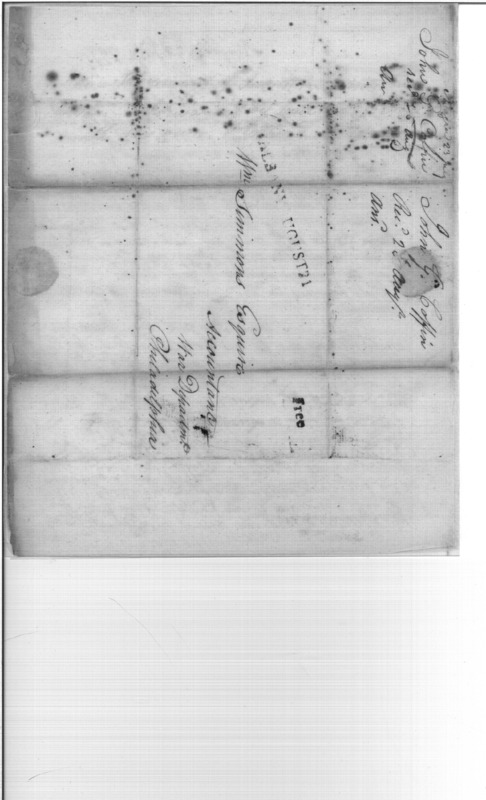 John G. Coffin
Rec.d 25 Aug.
Ans.d
John G. Coffin
Aug
An
ALBANY AUGUST 21
Free
Wm Simmons Esquire
Accountant
War Department
Philadelphia